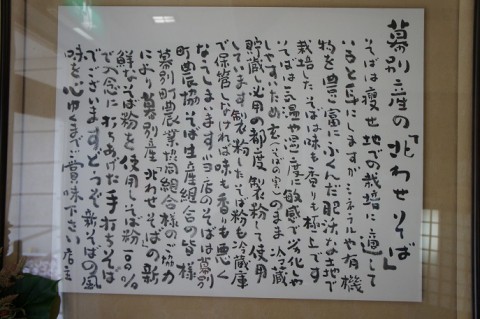 幕別産の「北わせそば」
そばは痩せ地での栽培に適して
いると耳にしますがミネラルや有機
物を豊富にふくんだ肥沃な土地で
栽培したそばは味も香りも極上です
いそばは気温や湿度に敏感で劣化しや
しやすいため玄(そばの実)のまま冷蔵
貯蔵し必用の都度製粉して使用
しています。製粉したそば粉も冷蔵庫
で保管しなければ味も香りも悪く
なってしまいます。当店のそばは幕別
町農協そば生産組合の皆様
幕別町農業協同組合様のご協力
により幕別産北わせそばの新
鮮なそば粉を使用しそば粉100%
での念に打ちあげた手打ちそば
でございます。どうぞ新そばの風
味を心ゆくまでご賞味下さい 店主